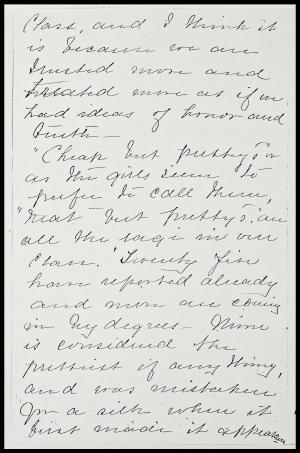 Class, and I think it
is because we are
trusted more and
treated more as if we
had ideas of honor and
truth —
"Cheap but pretty's" or
as the girls seem to
prefer to call them,
"Neat but pretty's" are
all the rage in our
Class. Twenty five
have reported already
and more are coming
in by degrees — Mine
is considered the
prettiest if any thing,
and was mistaken
for a silk when it
first made it appearance